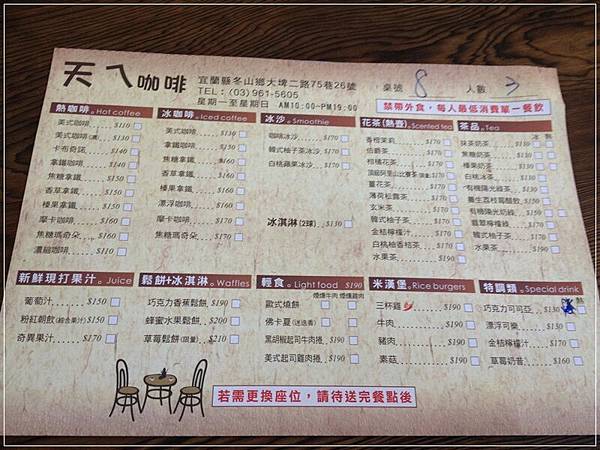 天ㄟ咖啡
宜蘭縣冬山鄉大埤二路75巷26號
TEL:(03)961-5605
星期一至星期日 AM10:00~PM19:00
桌號 8 人數 3
禁帶外食，每人最低消費單一餐飲
熱咖啡。Hot coffee
美式咖啡 $110
美式咖啡(濃) $130
卡布奇諾 $140
拿鐵咖啡 $140
焦糖拿鐵 $150
香草拿鐵 $150
榛果拿鐵 $150
摩卡咖啡 $160
焦糖瑪奇朵 $160
濃縮咖啡 $110
冰咖啡。Iced coffee
美式咖啡 $130
拿鐵咖啡 $150
焦糖拿鐵 $160
香草拿鐵 $160
榛果拿鐵 $160
漂浮咖啡 $170
摩卡咖啡 $170
焦糖瑪奇朵 $170
冰沙。Smoothie
咖啡冰沙 $170
韓式柚子茶冰沙 $170
白桃蘋果冰沙 $170
冰淇淋(2球) $130
花茶(熱壺)。Scented tea
香橙茉莉 $170
伯爵茶 $170
柑橘花茶 $170
頂級阿里山比賽茶
薑花茶 $170
薄荷松露茶 $170
玄米茶 $170
韓式柚子茶 $170
金桔檸檬汁 $170
白桃柚香桔茶 $170
水果茶 $190
茶品。Tea
冰 熱
抹茶奶茶 $130
焦糖奶茶
榛果奶茶
白桃冰茶
有機陽光紅茶
養生荔枝莓醋飲 $150
有機陽光奶綠
翡翠檸檬綠
韓式柚子茶
水果茶
新鮮現打果汁。Juice
葡萄汁 $150
粉紅朝飲(綜合果汁) $150
奇異果汁 $170
鬆餅+冰淇淋。Waffles
巧克力香蕉鬆餅 $190
蜂蜜水果鬆餅 $200
草莓鬆餅(限量) $210
輕食。Light food $190
煙燻牛肉 煙燻雞肉
歐式燒餅
佛卡夏(送迷香)
黑胡椒起司牛肉捲 $190
美式起司雞肉捲 $190
米漢堡。Rice burgers
三杯雞 $190
牛肉 $190
豬肉 $190
素菇 $190
特調類。Special drink
冰 熱
巧克力可可亞 $130
漂浮可樂 $130
金桔檸檬汁 $170
草莓奶昔 $160
若需更換座位，請待送完餐點後